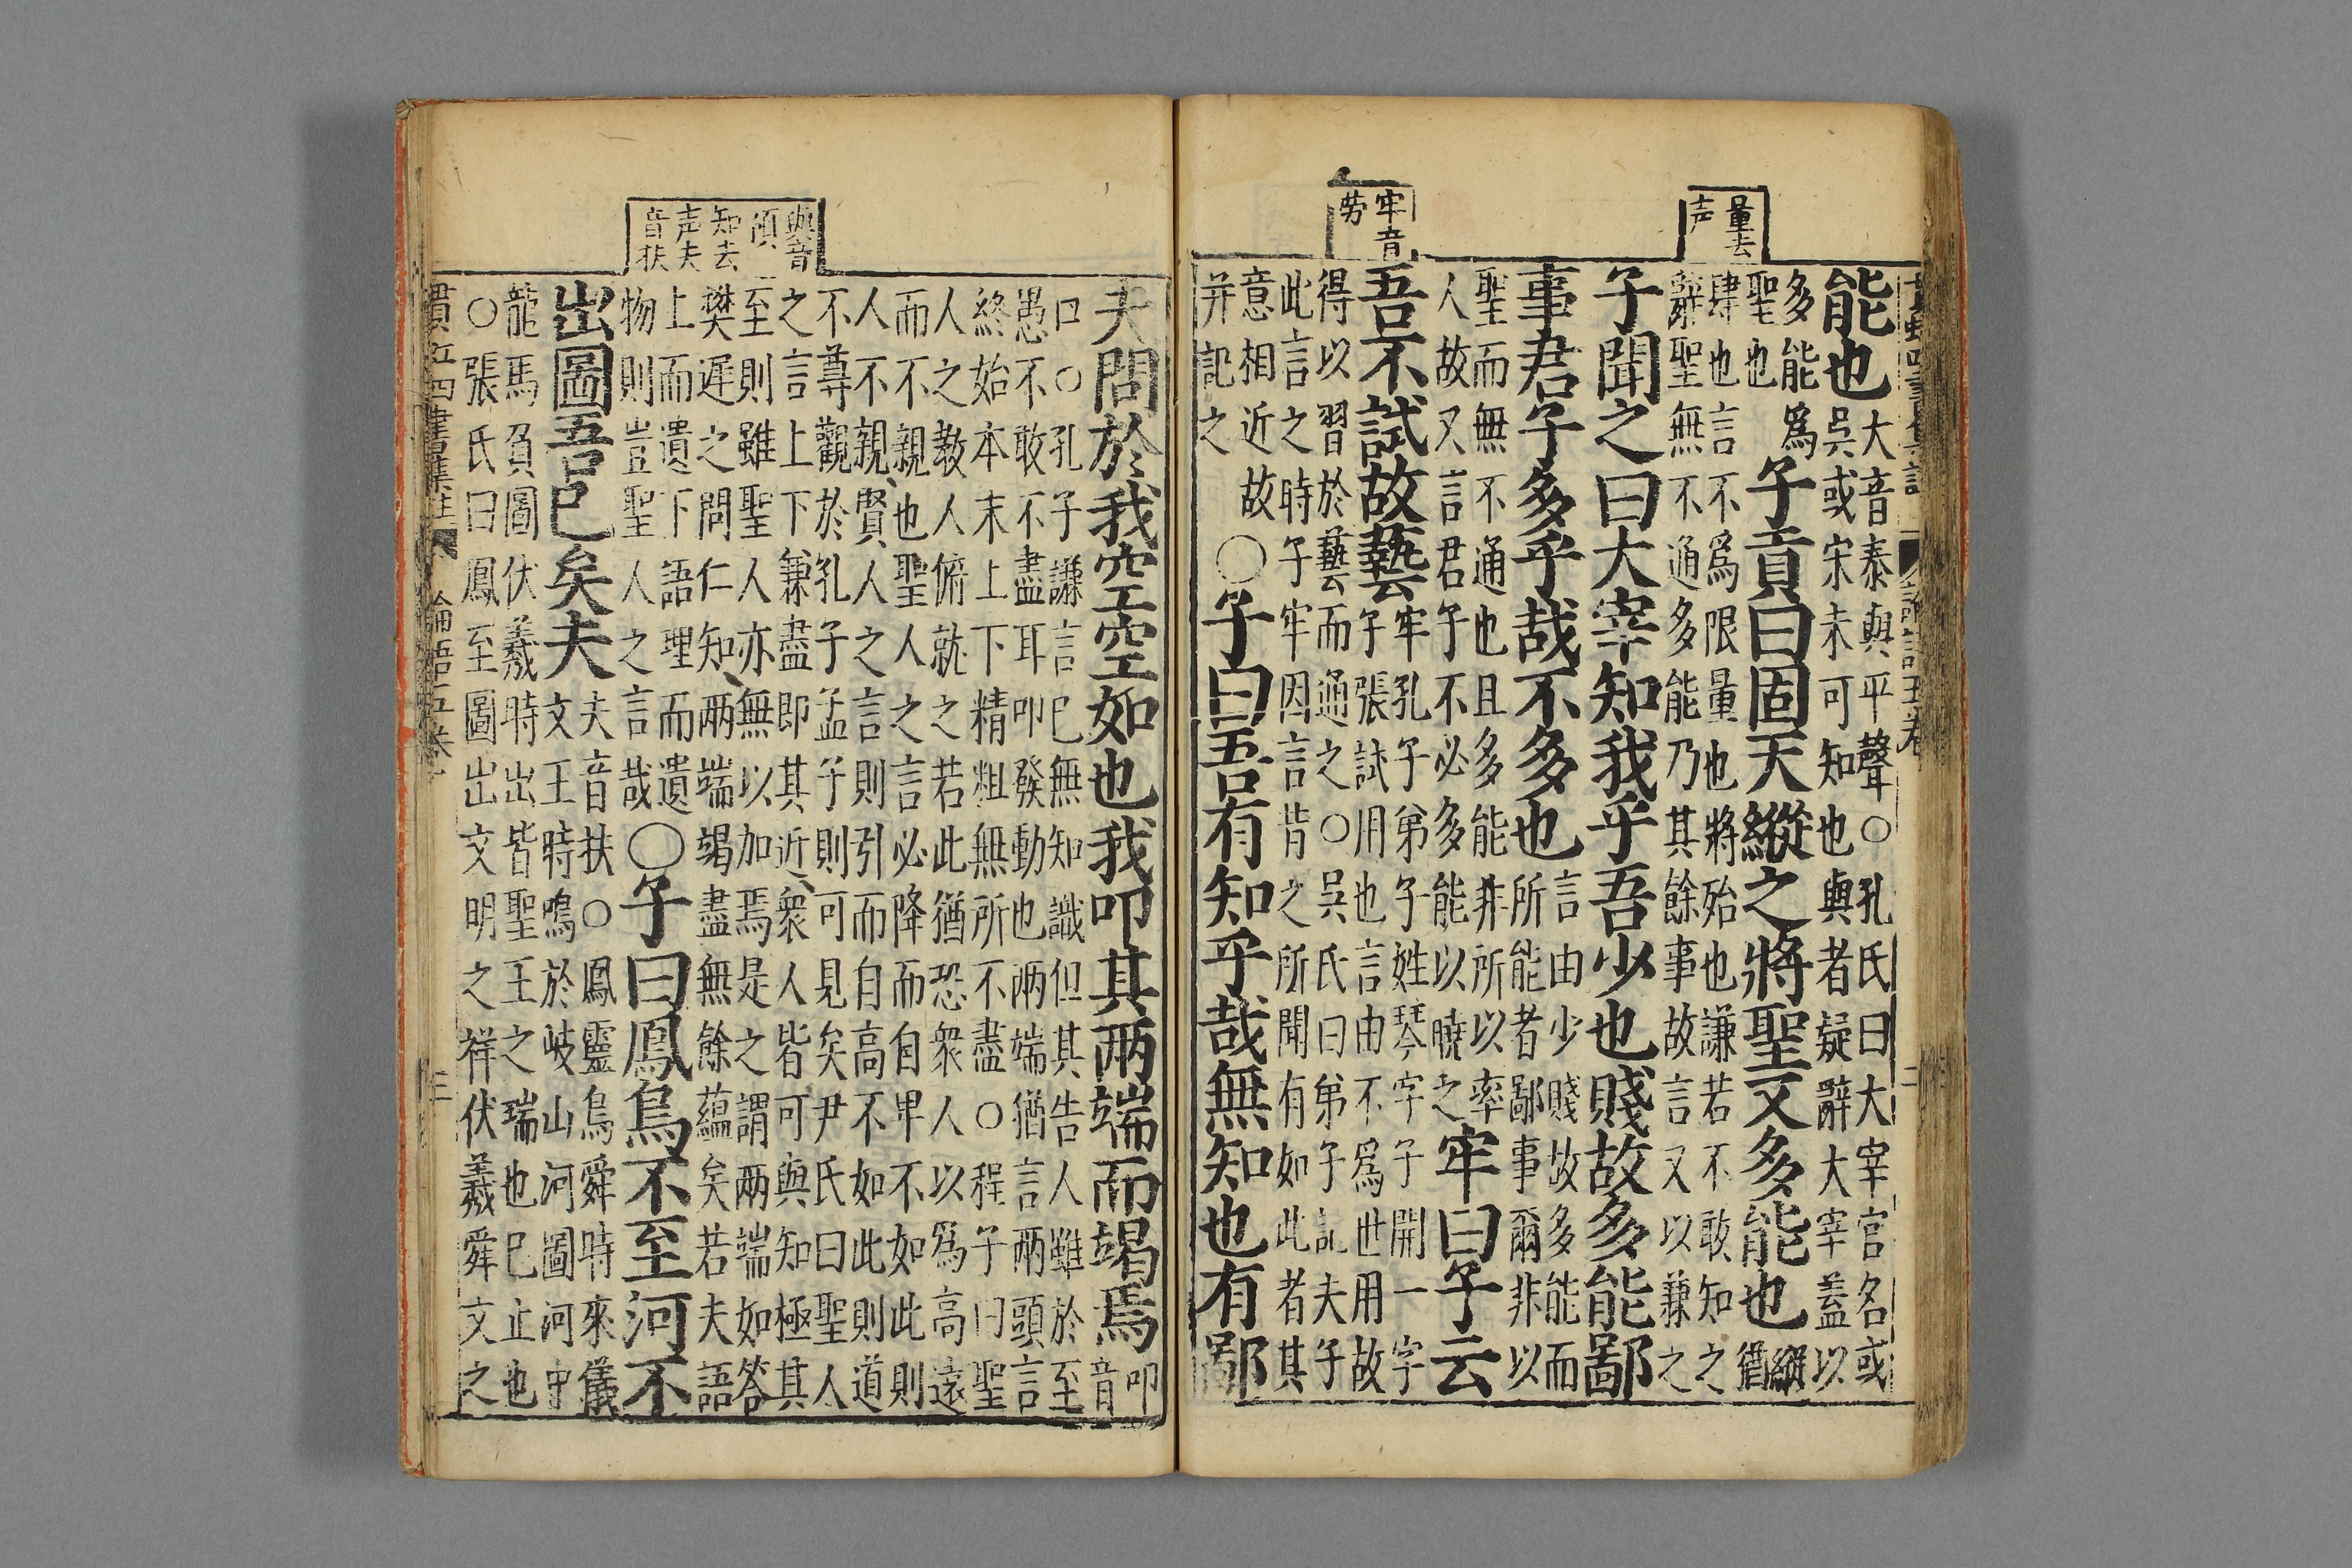 量去
声
牢音
劳
能也大音泰與平聲○孔氏曰大宰官名或
吳或宋未可知也與者疑辭大宰蓋以
多能爲
聖也子貢曰固天縱之將聖又多能也縱
猶
肆也言不爲限量也將殆也謙若不敢知之
辭聖無不通多能乃其餘事故言又以兼之
子聞之曰大宰知我乎吾少也賤故多能鄙
事君子多乎哉不多也言由少賤故多能而
所能者鄙事爾非以
聖而無不通也且多能非所以率
人故又言君子不必多能以曉之牢曰子云
吾不試故藝牢孔子弟子姓琴字子開一字
子張試用也言由不爲世用故
得以習於藝而通之○吳氏曰弟子記夫子
此言之時子牢因言昔之所聞有如此者其
意相近故
并記之○子曰吾有知乎哉無知也有鄙
與音
須
知去
声夫
音扶
夫問於我空空如也我叩其兩端而竭焉叩
音
口○孔子謙言已無知識但其告人雖於至
愚不敢不盡耳叩發動也兩端猶言兩頭言
終始本末上下精粗無所不盡○程子曰聖
人之教人俯就之若此猶恐衆人以爲高遠
而不親也聖人之言必降而自卑不如此則
人不親賢人之言則引而自高不如此則道
不尊觀於孔子孟子則可見矣尹氏曰聖人
之言上下兼盡即其近衆人皆可與知極其
至則雖聖人亦無以加焉是之謂兩端如答
樊遲之問仁知兩端竭盡無餘蘊矣若夫語
上而遺下語理而遺
物則豈聖人之言哉○子曰鳳鳥不至河不
出圖吾已矣夫夫音扶○鳳靈鳥舜時來儀
文王時鳴於岐山河圖河中
龍馬負圖伏羲時出皆聖王之瑞也已止也
○張氏曰鳳至圖出文明之祥伏羲舜文之